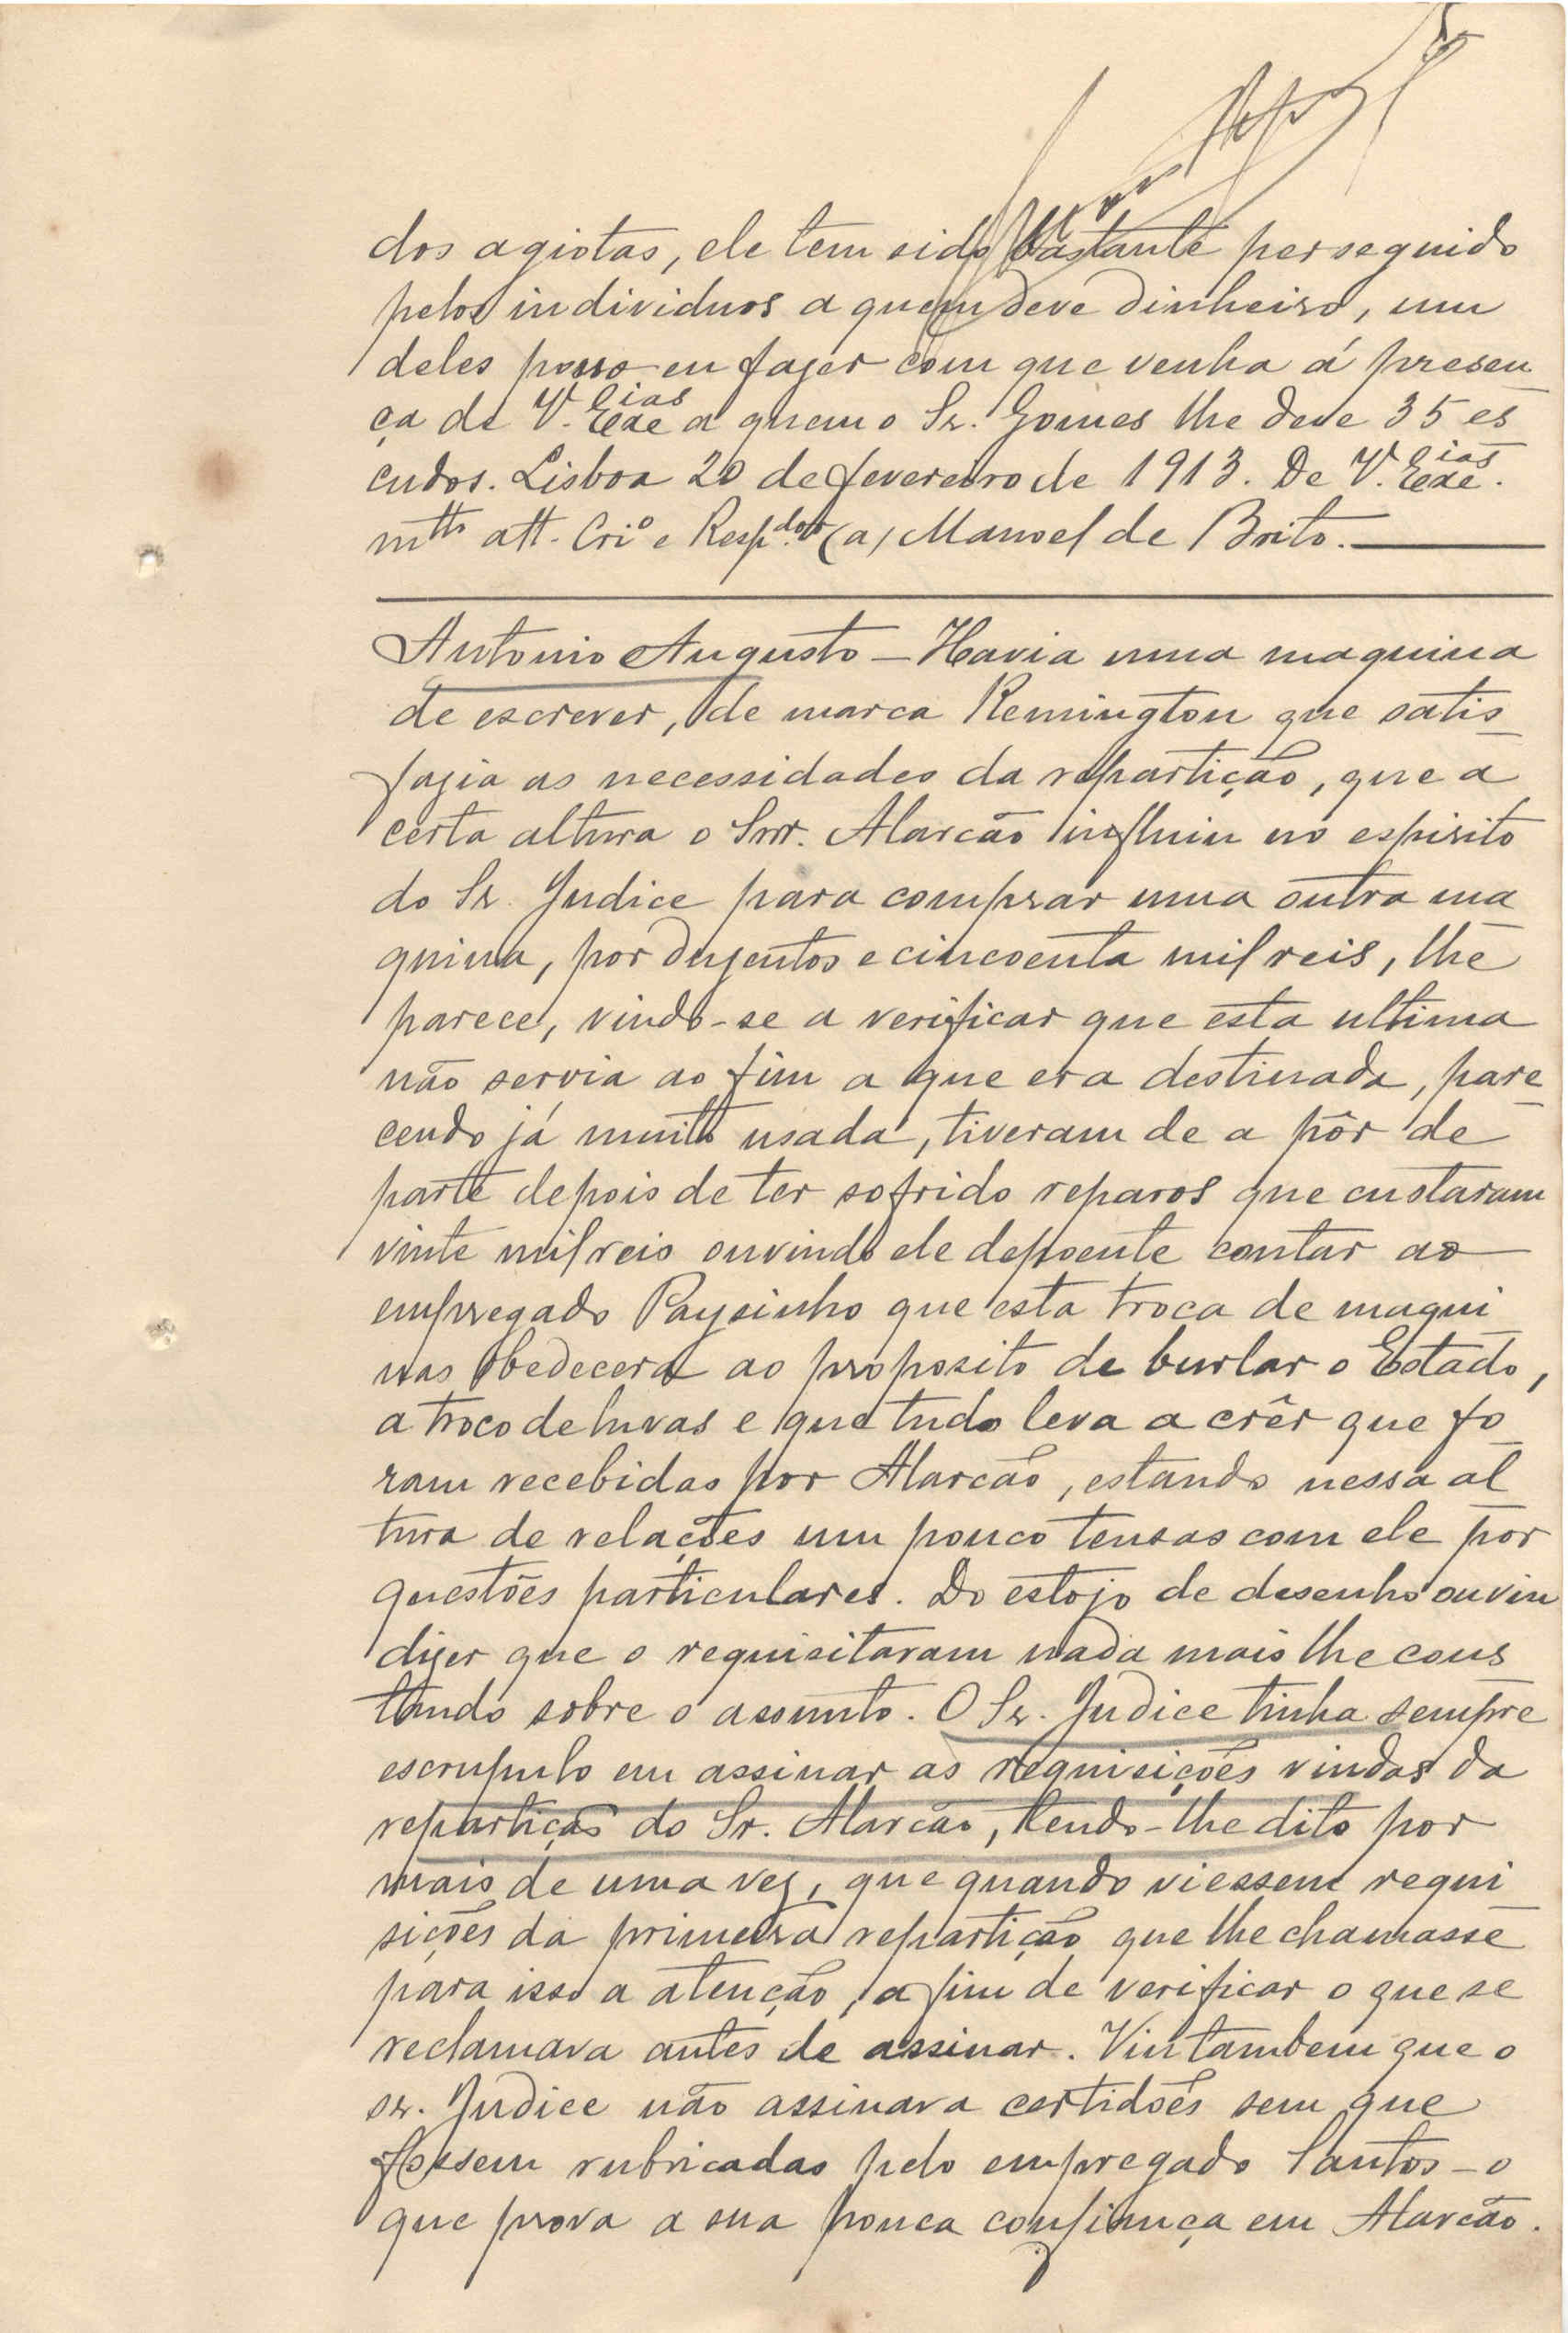 dos agiotas, ele tem sido bastante perseguido
pelos individuos a quem deve dinheiro, um
deles posso eu fazer com que venha á presen
ça de V. Exas a quem o Sr. Gomes lhe deve 35 es
cudos. Lisboa 20 de fevereiro de 1913. De V. Exas.
mtt att. Crio e Respdor (a) Manoel de Brito.
Antonio Augusto — Havia uma maquina
de escrever, de marca Remington que satis
fazia as necessidades da repartição, que a
certa altura o Snr. Alarcão influiu no espirito
do Sr. Judice para comprar uma outra ma
quina, por duzentos e cincoenta mil reis, lhe
parece, vindo-se a verificar que esta ultima
não servia ao fim a que era destinada, pare
cendo já muito usada, tiveram de a pôr de
parte depois de ter sofrido reparos que custaram
vinte mil reis ouvindo ele depoente contar ao
empregado Paysinho que esta troca de maqui
nas obedecera ao proposito de burlar o Estado,
a troco de luvas e que tudo leva a crêr que fo
ram recebidas por Alarcão, estando nessa al
tura de relações um pouco tensas com ele por
questões particulares. Do estojo de desenho ouviu
dizer que o requisitaram nada mais lhe cons
tando sobre o assunto. O Sr. Judice tinha sempre
escrupulo em assinar as requisições vindas da
repartição do Sr. Alarcão, tendo-lhe dito por
mais de uma vez, que quando viessem requi
sições da primeira repartição que lhe chamasse
para isso a atenção, a fim de verificar o que se
reclamava antes de assinar. Viu tambem que o
sr. Judice não assinava certidões sem que
fossem rubricadas pelo empregado Santos — o
que prova a sua pouca confiança em Alarcão.